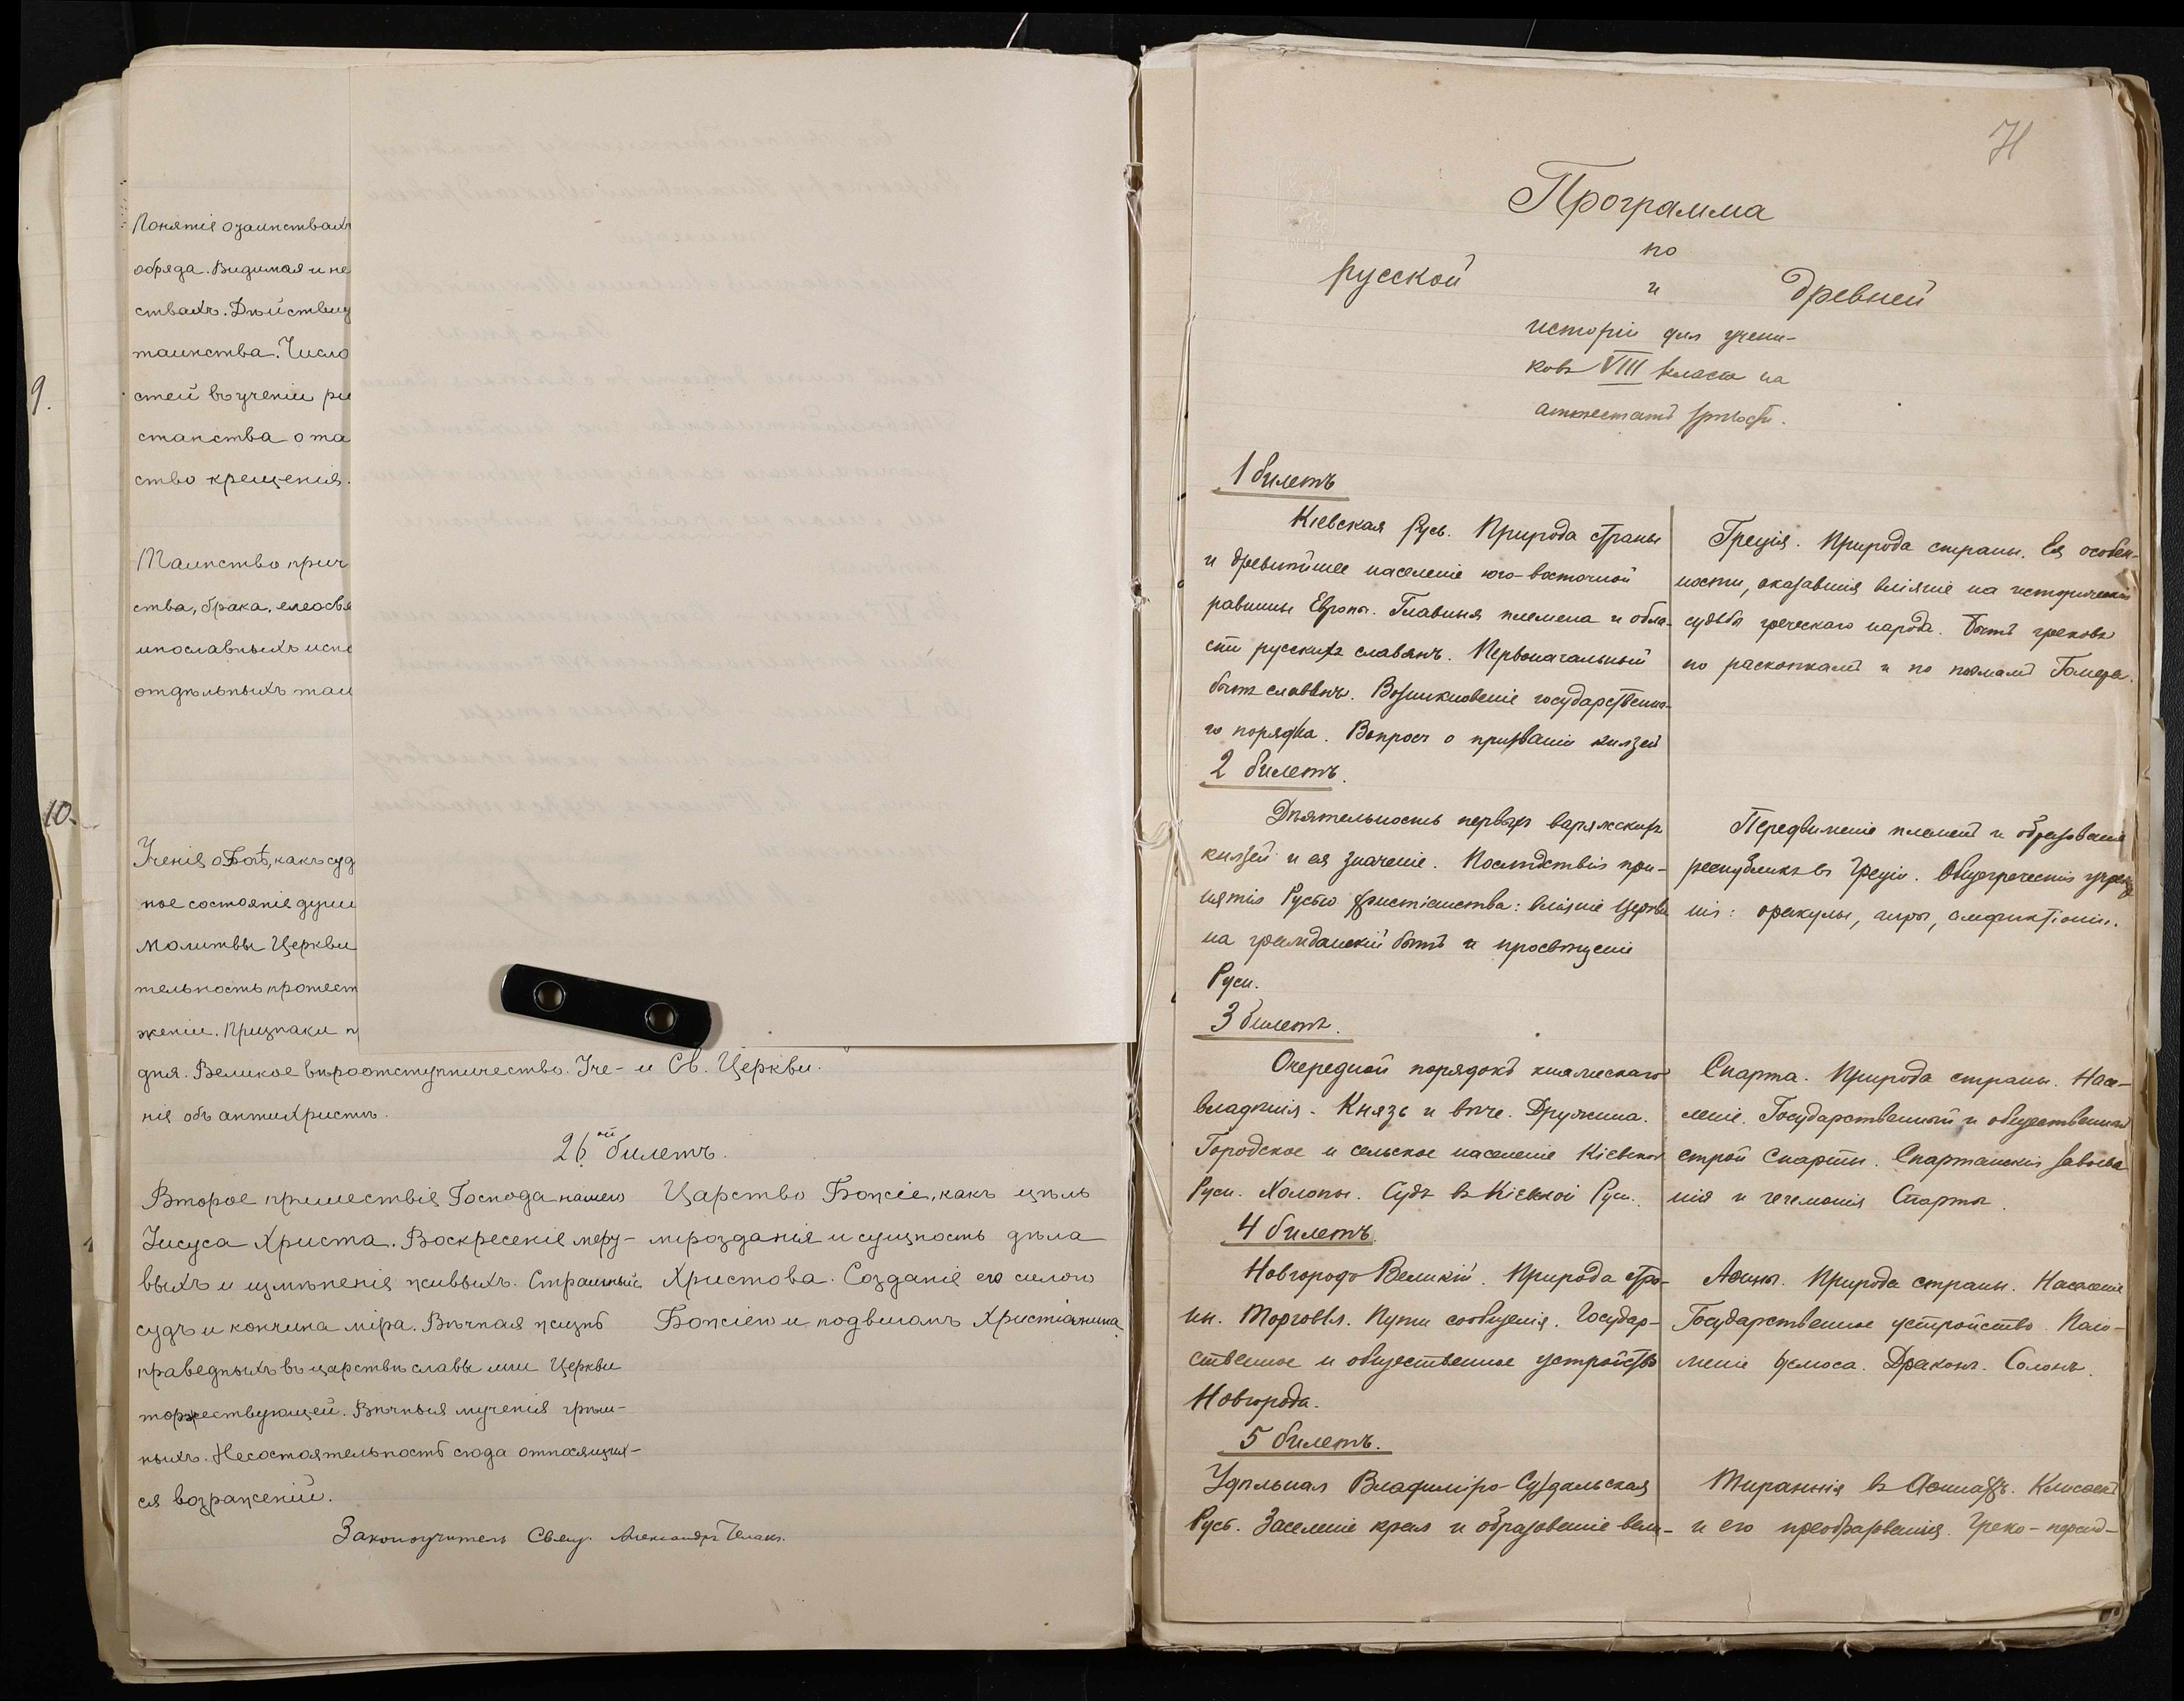 9.
10.
Понятіе о таинствахъ
обряда. Видимая и не
ствахъ. Дѣйствит
таинства. Число
стей въ ученіи ри
станства о та
ство крещенія.
Таинство прич
ства, брака, елеосвя
инославныхъ испо
отдѣльныхъ таи
Ученіе о Богѣ, какъ суд
ное состояніе души
Молитвы Церкви
тельность протест
женіи. Признаки п
дня. Великое вѣроотступничество. Уче- и Св. Церкви.
ніе объ антихристѣ.
26ой билетъ.
Второе пришествіе Господа нашего
Іисуса Христа. Воскресеніе мер-
выхъ и измѣненіе живыхъ. Страшный
судъ и кончина міра. Вѣчная жизнь
праведныхъ въ царствѣ славы или Церкви
торжествующей. Вѣчныя мученія грѣш-
ныхъ. Несостоятельность сюда относящих-
ся возраженій.
Царство Божіе, какъ цѣль
мірозданія и сущность дѣла
Христова. Созданіе его силою
Божіею и подвигомъ Христіанина
Законоучитель Свящ. Александръ
71
Программа
по
русской и древней
исторіи для учени-
ковъ VIII класса на
аттестатъ зрѣлости.
1 билетъ
Кіевская Русь. Природа страны
и древнѣйшее населеніе юго-восточной
равнины Европы. Главныя племена и обла-
сти русскихъ славянъ. Первоначальный
бытъ славянъ. Возникновеніе государственна-
го порядка. Вопросъ о призваніи князей
Греція. Природа страны. Ея особен-
ности, оказавшія вліяніе на историческія
судьбы греческаго народа. Бытъ грековъ
по раскопкамъ и по поэмамъ Гомера.
2 билетъ.
Дѣятельность первыхъ варяжскихъ
князей и ея значеніе. Послѣдствія при-
нятія Русью христіанства: вліяніе Церкви
на гражданскій бытъ и просвѣщеніе
Руси.
Передвиженіе племенъ и образованіе
республикъ въ Греціи. Общегреческія учрежде
нія: оракулы, игры, амфиктіоніи.
3 билетъ.
Очередной порядокъ княжескаго
владѣнія. Князь и вѣче. Дружина.
Городское и сельское населеніе Кіевской
Руси. Холопы. Судъ въ Кіевской Руси.
Спарта. Природа страны. Насе-
леніе. Государственный и общественный
строй Спарты. Спартанскія завоева
нія и гегемонія Спарты.
4 билетъ.
Новгородъ Великій. Природа стра-
ны. Торговля. Пути сообщенія. Государ-
ственное и общественное устройство
Новгорода.
Аѳины. Природа страны. Населеніе
Государственное устройство. Поло-
женіе демоса. Драконъ. Солонъ.
5 билетъ.
Удѣльная Владиміро-Суздальская
Русь. Заселеніе края и образованіе вели-
Тираннія въ Аѳинахъ. Клисѳенъ
и его преобразованія. Греко-персид-